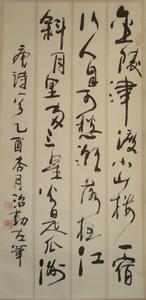 金陵津渡小山樓一宿
行人自可愁潮落夜江
斜月里两三星火是瓜洲
唐詩一首乙酉杏月治勤左筆